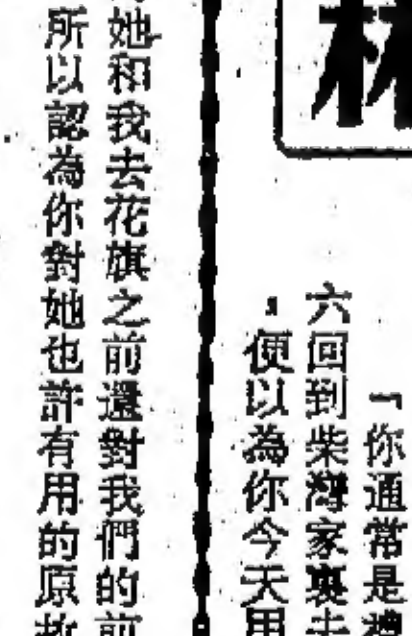 林
「你通常是禮
六回到柴灣家裏去
，便以為你今天用
她和我去花旗之前還對我們的前
所以認為你對她也許有用的原故